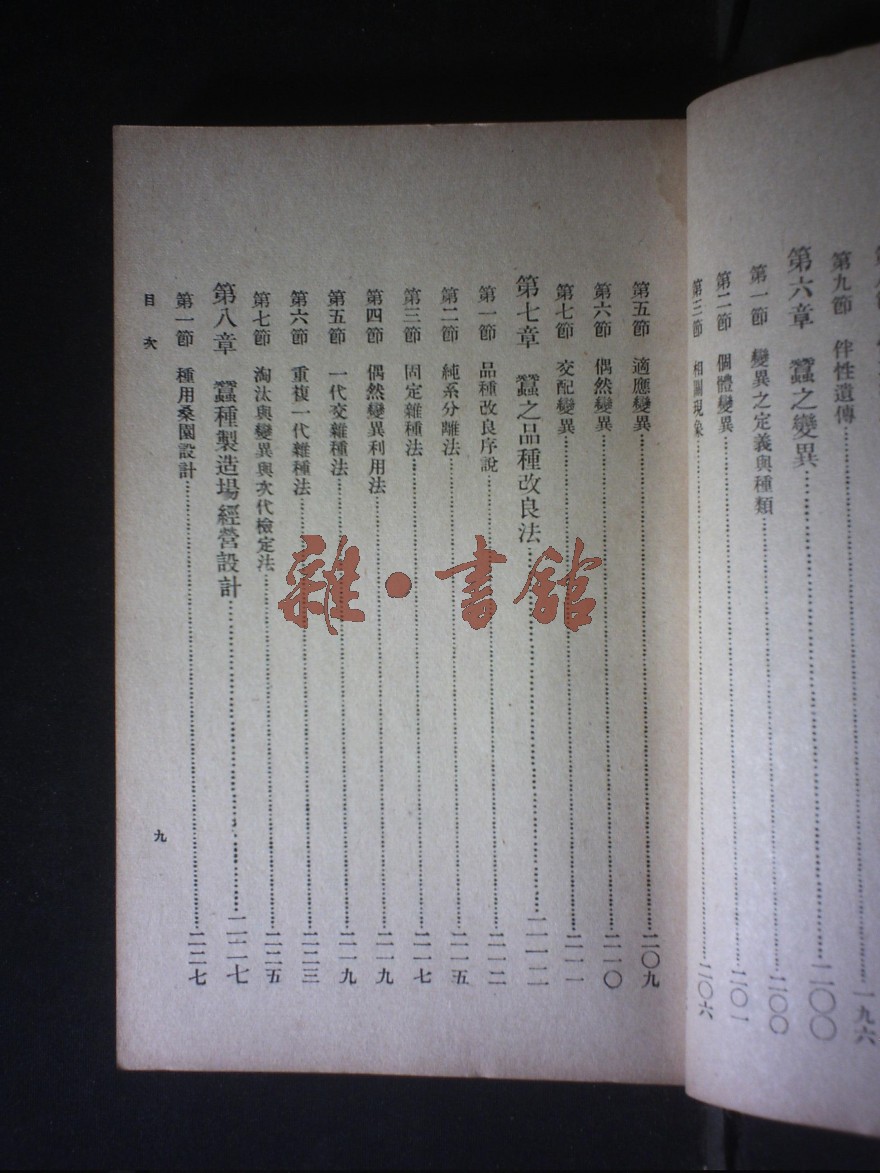 第九節 伴性遺傳……一九六
第六章 蠶之變異……二〇〇
第一節 變異之定義與種類……二〇〇
第二節 個體變異……二〇一
第三節 相關現象……二〇六
第五節 適應變異……二〇九
第六節 偶然變異……二一〇
第七節 交配變異……二一一
第七章 蠶之品種改良法……二一二
第一節 品種改良序說……二一二
第二節 純系分離法……二一五
第三節 固定雜種法……二一七
第四節 偶然變異利用法……二一九
第五節 一代交雜種法……二一九
第六節 重複一代雜種法……二二三
第七節 淘汰與變異與次代檢定法……二二五
第八章 蠶種製造場經營設計……二二七
第一節 種用桑園設計……二二七
目次
九
雜·書館